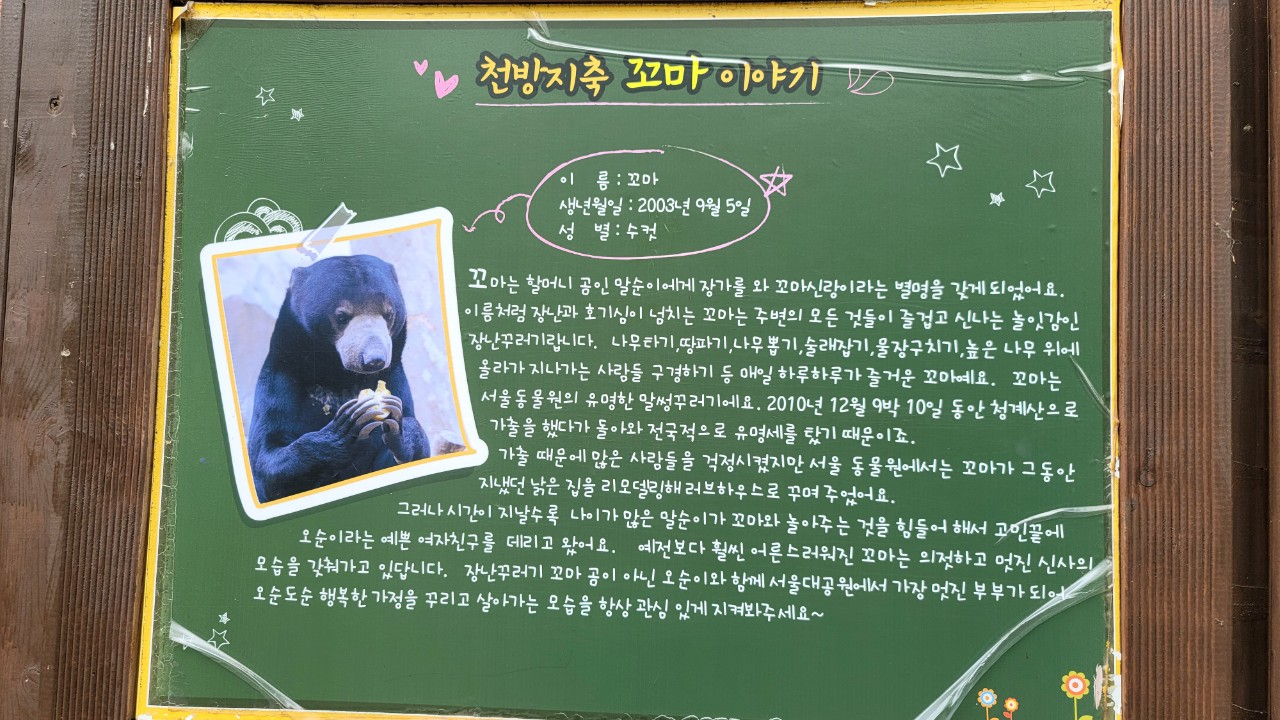 천방지축 꼬마 이야기
이 름 : 꼬마
생년월일 : 2003년 9월 5일
성 별 : 수컷
꼬마는 할머니 곰인 말순이에게 장가를 와 꼬마신랑이라는 별명을 갖게 되었어요.
이름처럼 장난과 호기심이 넘치는 꼬마는 주변의 모든 것들이 즐겁고 신나는 놀잇감인
장난꾸러기랍니다. 나무타기,땅파기,나무뽑기,술래잡기,물장구치기,높은 나무 위에
올라가 지나가는 사람들 구경하기 등 매일 하루하루가 즐거운 꼬마예요. 꼬마는
서울동물원의 유명한 말썽꾸러기에요. 2010년 12월 9박 10일 동안 청계산으로
가출을 했다가 돌아와 전국적으로 유명세를 탔기 때문이죠.
가출 때문에 많은 사람들을 걱정시켰지만 서울 동물원에서는 꼬마가 그동안
지냈던 낡은 집을 리모델링해 러브하우스로 꾸며 주었어요.
그러나 시간이 지날수록 나이가 많은 말순이가 꼬마와 놀아주는 것을 힘들어 해서 고민끝에
오순이라는 예쁜 여자친구를 데리고 왔어요. 예전보다 훨씬 어른스러워진 꼬마는 의젓하고 멋진 신사의
모습을 갖춰가고 있답니다. 장난꾸러기 꼬마 곰이 아닌 오순이와 함께 서울대공원에서 가장 멋진 부부가 되어
오순도순 행복한 가정을 꾸리고 살아가는 모습을 항상 관심 있게 지켜봐주세요~